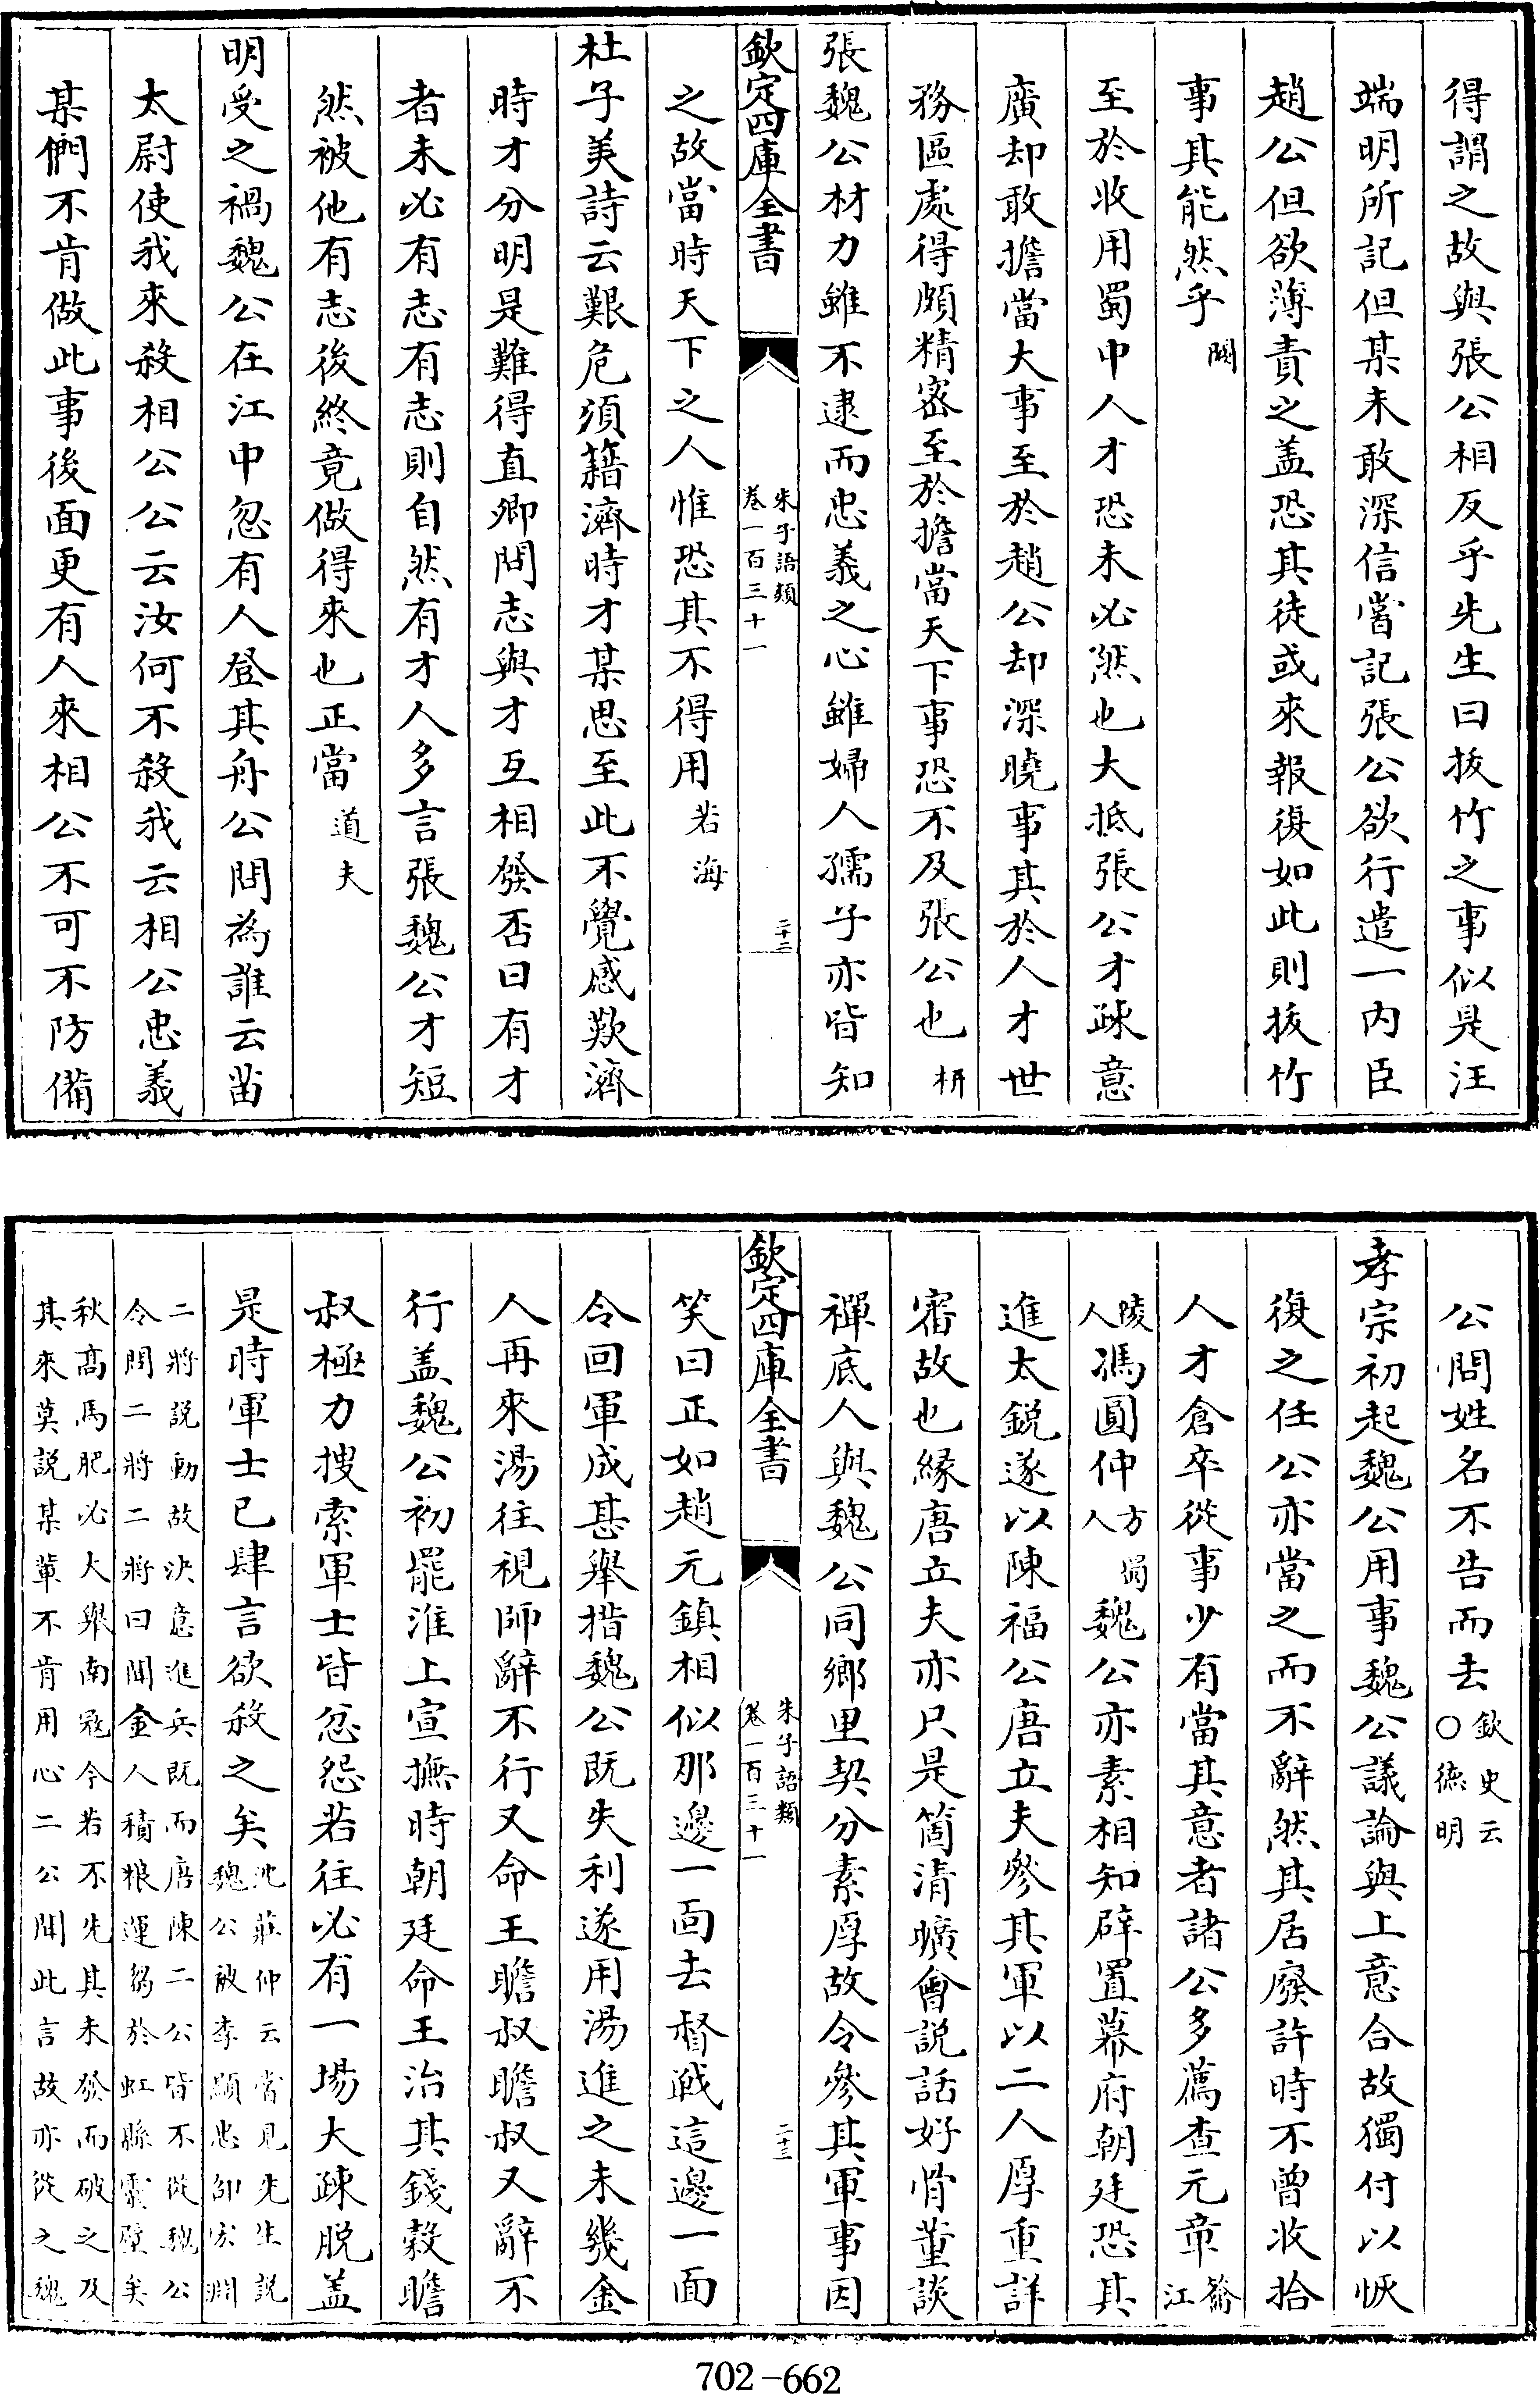 得謂之故與張公相反乎先生曰拔竹之事似是汪
端明所記但某未敢深信嘗記張公欲行遣一内臣
趙公但欲薄責之盖恐其徒或來報復如此則拔竹
事其能然乎闕
至於收用蜀中人才恐未必然也大抵張公才疎意
廣却敢擔當大事至於趙公却深曉事其於人才世
務區處得頗精密至於擔當天下事恐不及張公也枅
張魏公材力雖不逮而忠義之心雖婦人孺子亦皆知
欽定四庫全書
朱子語類
卷一百三十一
二十二
之故當時天下之人惟恐其不得用若海
杜子美詩云艱危須藉濟時才某思至此不覺感歎濟
時才分明是難得直卿問志與才互相發否曰有才
者未必有志有志則自然有才人多言張魏公才短
然被他有志後終竟做得來也正當道夫
明受之禍魏公在江中忽有人登其舟公問為誰云苗
太尉使我來殺相公公云汝何不殺我云相公忠義
某們不肯做此事後面更有人來相公不可不防備
公問姓名不告而去欽史云
○德明
孝宗初起魏公用事魏公議論與上意合故獨付以恢
復之任公亦當之而不辭然其居廢許時不曾收拾
人才倉卒從事少有當其意者諸公多薦查元章籥
江
陵
人馮圓仲方
人蜀魏公亦素相知辟置幕府朝廷恐其
進太鋭遂以陳福公唐立夫參其軍以二人厚重詳
審故也緣唐立夫亦只是箇清曠會説話好骨董談
禪底人與魏公同鄉里契分素厚故令參其軍事因
欽定四庫全書
朱子語類
卷一百三十一
二十三
笑曰正如趙元鎮相似那邊一面去督戰這邊一面
令回軍成甚舉措魏公既失利遂用湯進之未幾金
人再來湯往視師辭不行又命王瞻叔瞻叔又辭不
行盖魏公初罷淮上宣撫時朝廷命王治其錢榖瞻
叔極力搜索軍士皆忿怨若往必有一場大疎脱盖
是時軍士已肆言欲殺之矣沈莊仲云嘗見先生説
魏公被李顯忠邵宏淵
二將説動故決意進兵既而唐陳二公皆不從魏公
令問二將二將曰聞金人積粮運芻於虹縣靈壁矣
秋髙馬肥必大舉南冦今若不先其未發而破之及
其來莫説某軰不肯用心二公聞此言故亦從之魏
702-662